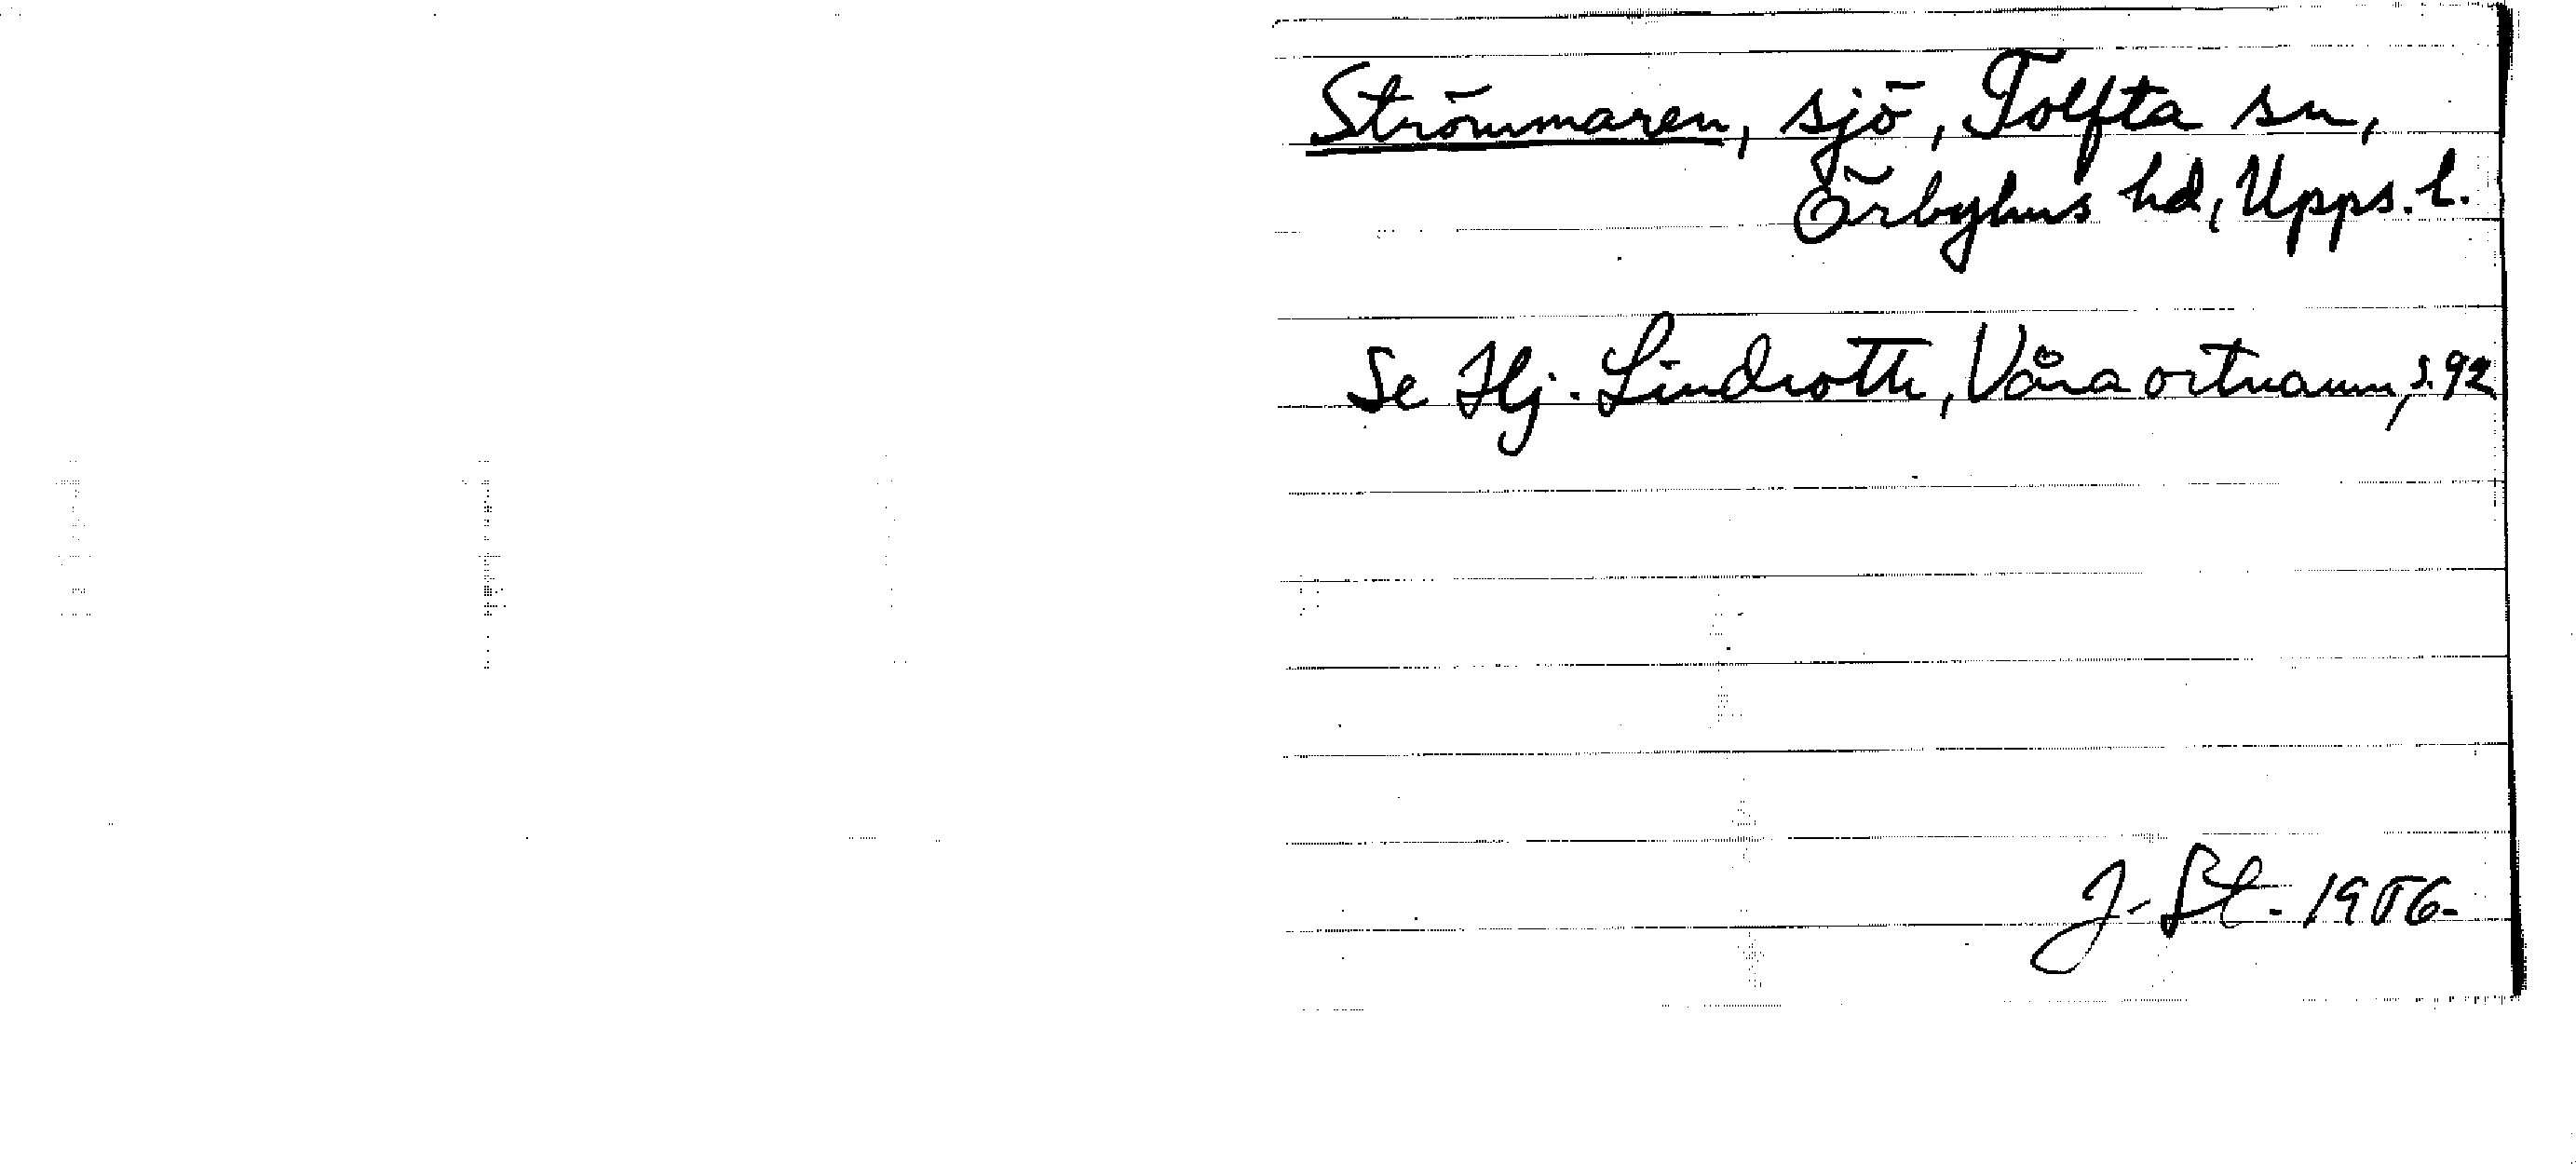 Strömmaren, sjö, Tolfta sn,
Örbyhus hd, Upps. l.
Se Hj. Lindroth, Våra ortnamn, s. 92
J. St. 1956.